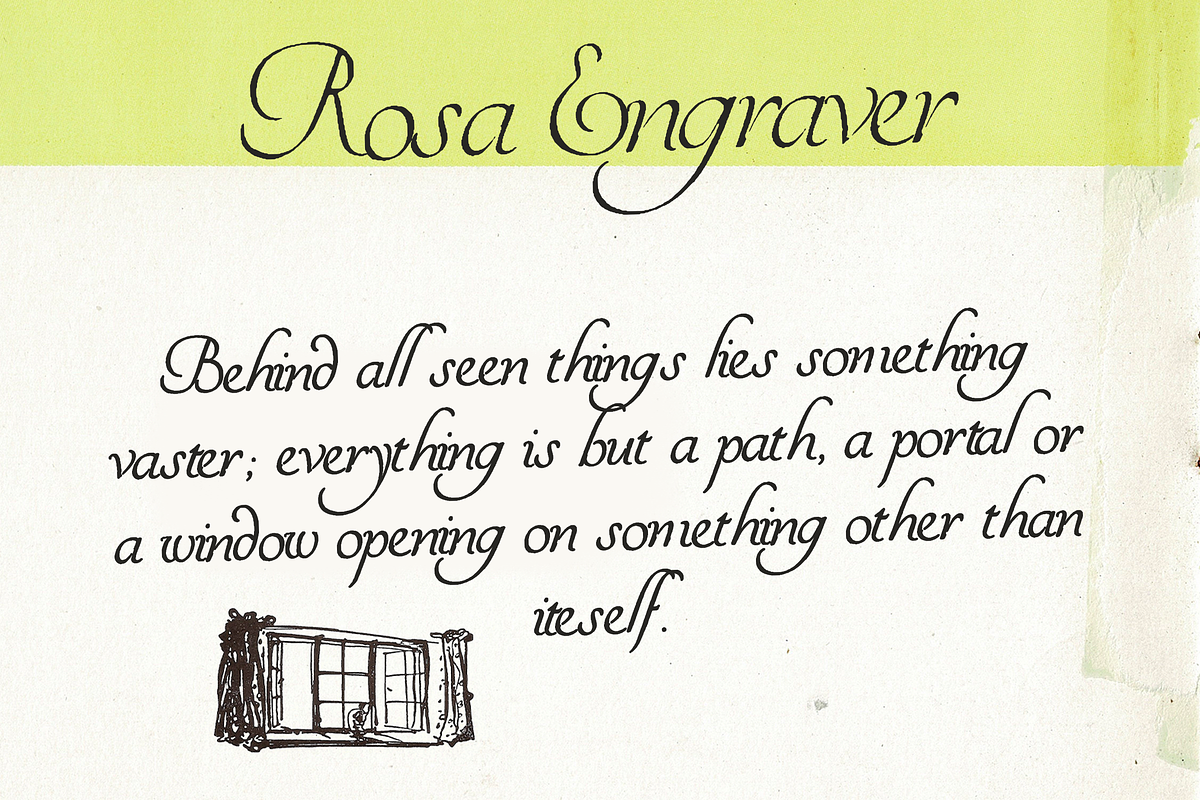 Rosa Engraver
Behind all seen things lies something
vaster; everything is but a path, a portal or
a window opening on something other than
iteself.